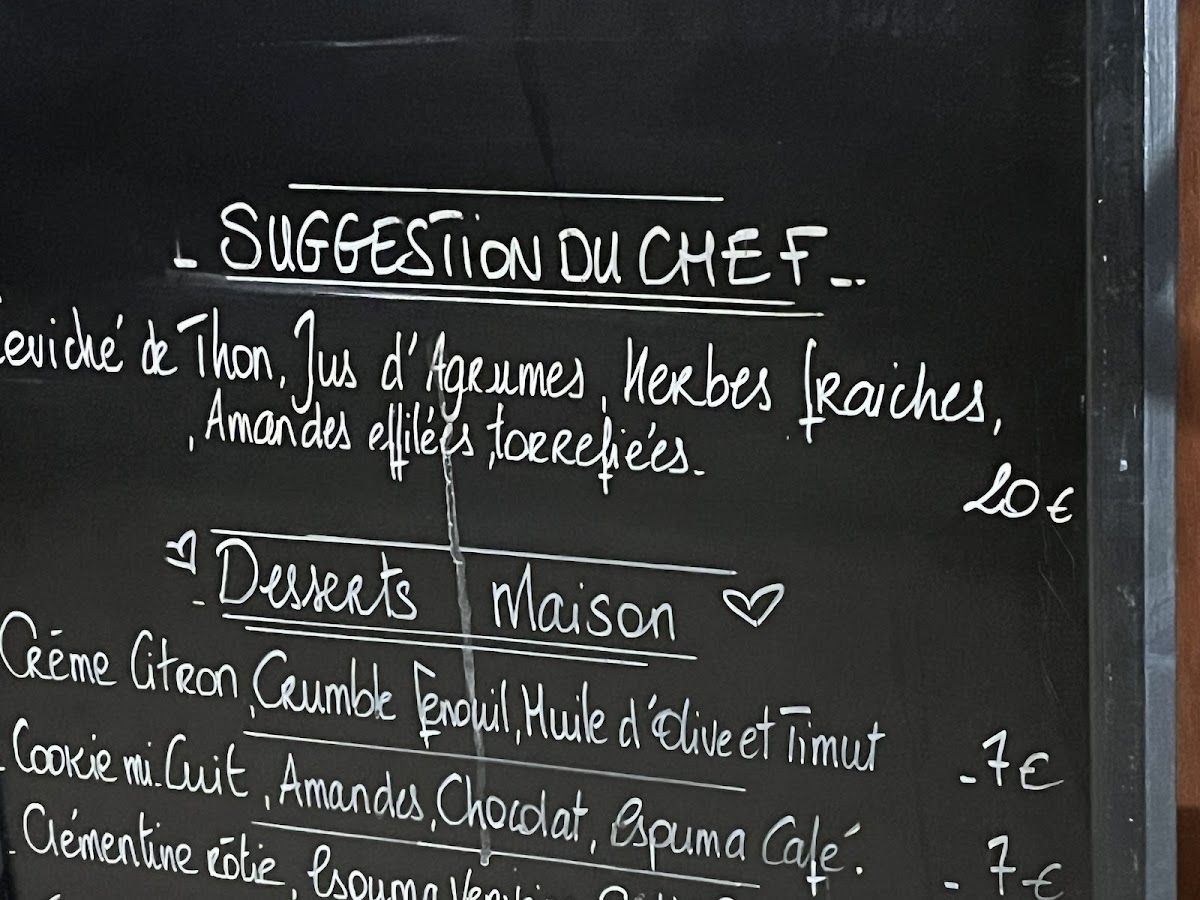 - SUGGESTION DU CHEF -.
Ceviché de Thon, Jus d'Agrumes, Herbes fraiches,
, Amandes effilées, torrefiées.
20 €
Desserts Maison
Crème Citron, Crumble Fenouil, Huile d'Olive et Timut - 7 €
- Cookie mi-Cuit, Amandes, Chocolat, Espuma Café. - 7 €
- Clémentine rôtie, Espuma